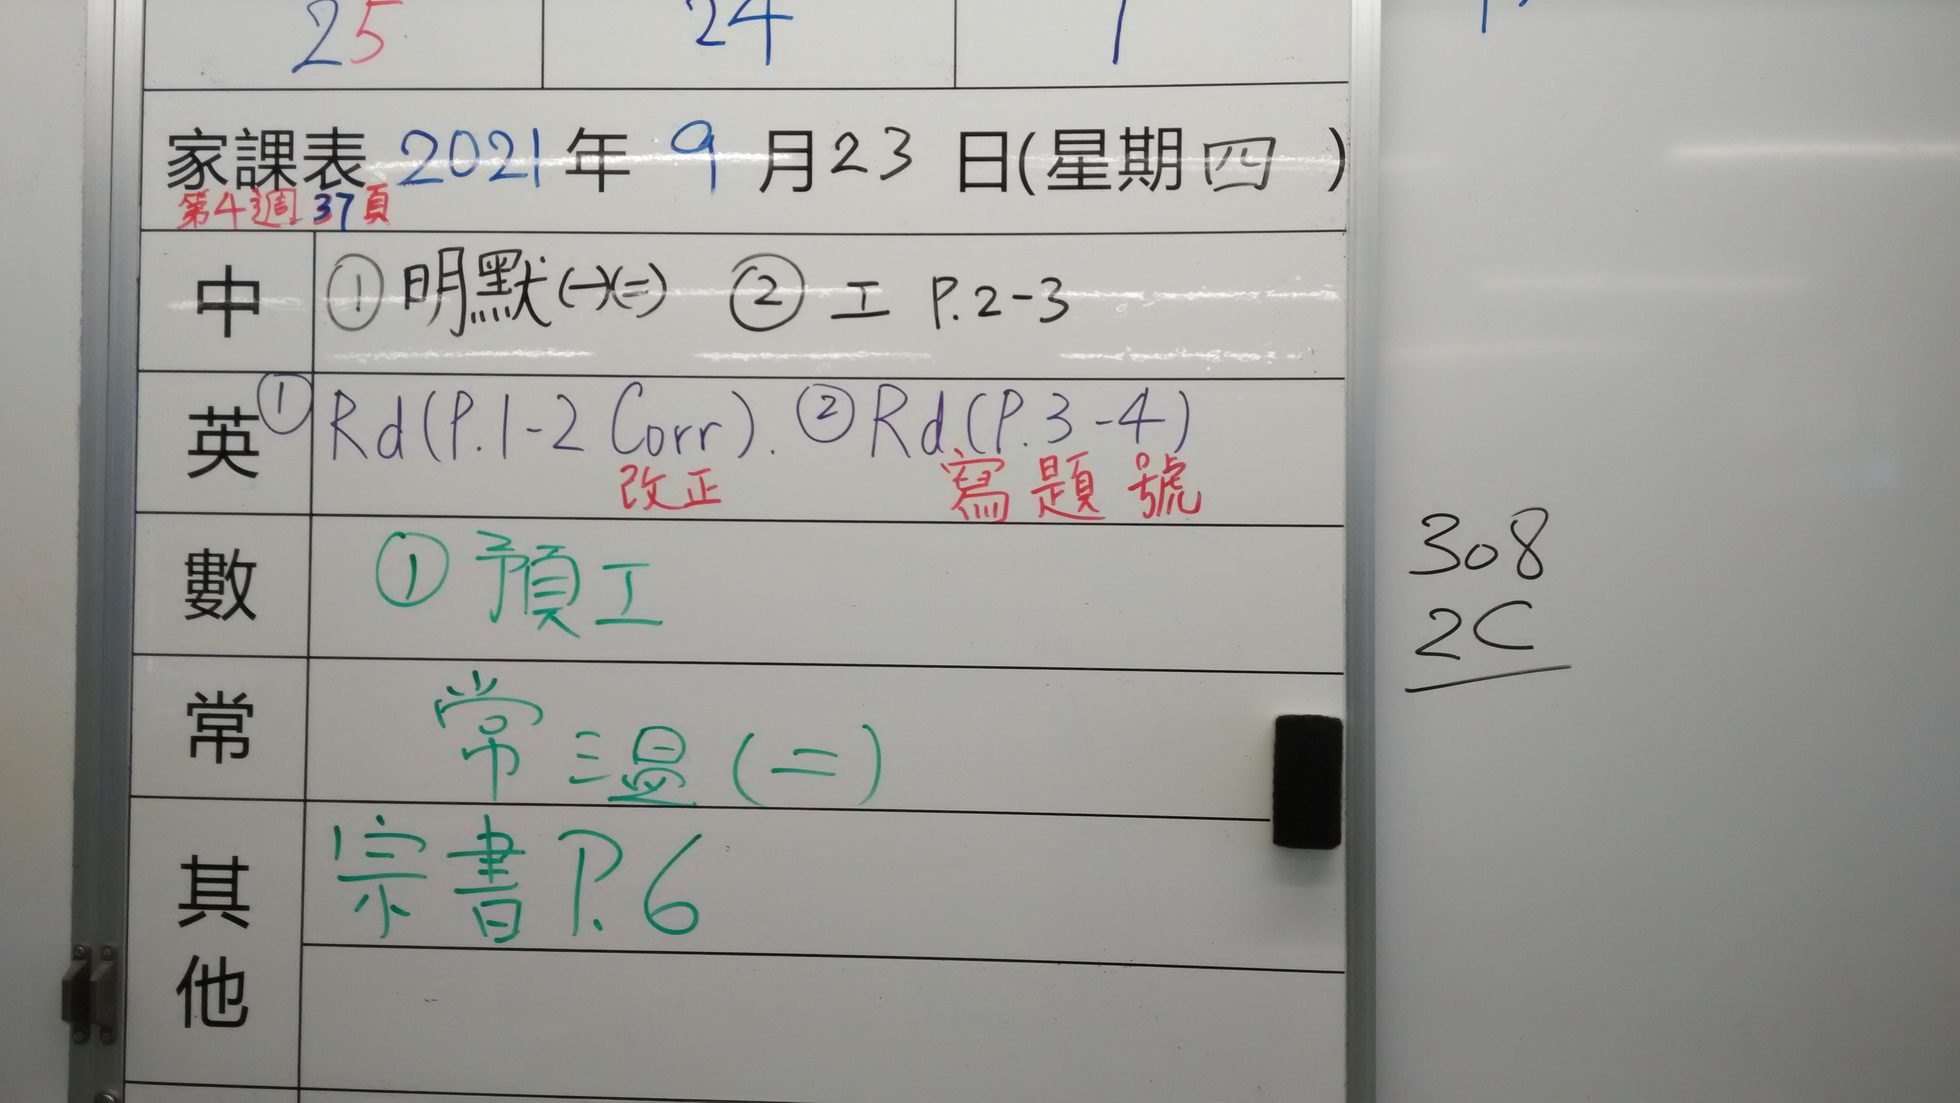 25 24 1
家課表 2021年 9 月23 日(星期四 )
第4週 37頁
中 ① 明默(一)(二) ② 工 P.2-3
英 ① Rd(P.1-2 Corr). ② Rd(P.3-4)
改正 寫題號
數 ① 預工
常 常溫(二)
其他 宗書 P.6
308
2C